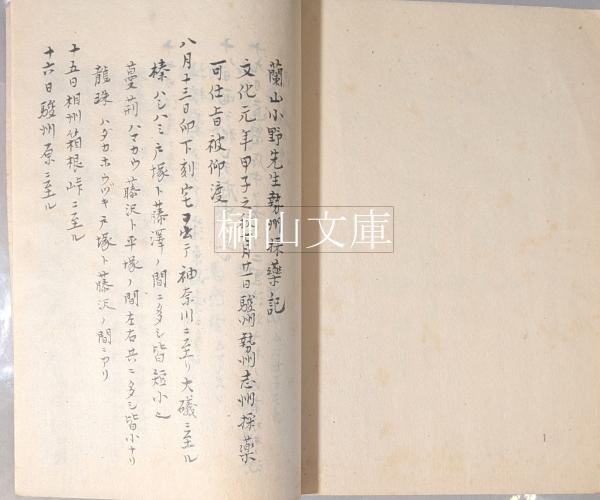 蘭山小野先生勢州採藥記
文化元年甲子之 月廿一日駿州勢州志州採藥
可仕旨被仰渡
八月十三日卯下刻宅ヲ出テ神奈川ニ至リ大磯ニ至ル
榛 ハシバミ 戸塚ト藤澤ノ間ニ多シ皆短小也
蔓荊 ハマカウ 藤沢ト平塚ノ間左右共ニ多シ皆小ナリ
龍珠 ハダカホウヅキ 戸塚ト藤沢ノ間ニアリ
十五日相州箱根峠ニ至ル
十六日駿州原ニ至ル
榊山文庫
1